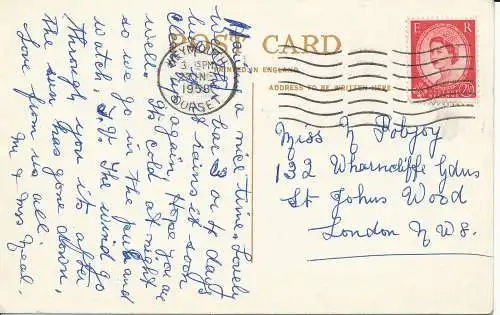 POST CARD
PRINTED IN ENGLAND
ADDRESS TO BE WRITTEN HERE
WEYMOUTH
3. 15PM
1958
DORSET
E R
Having a nice time. Lovely
weather but 3 or 4 days
but it rains it soon
again. Hope you are
well. Its cold at night
so we go in the pub and
watch T.V. The wind go
through you its after
the sun has gone down,
Love from us all.
M & Mrs Neal.
Miss N Pobjoy
132 Wharncliffe Gdns
St Johns Wood
London N W8.